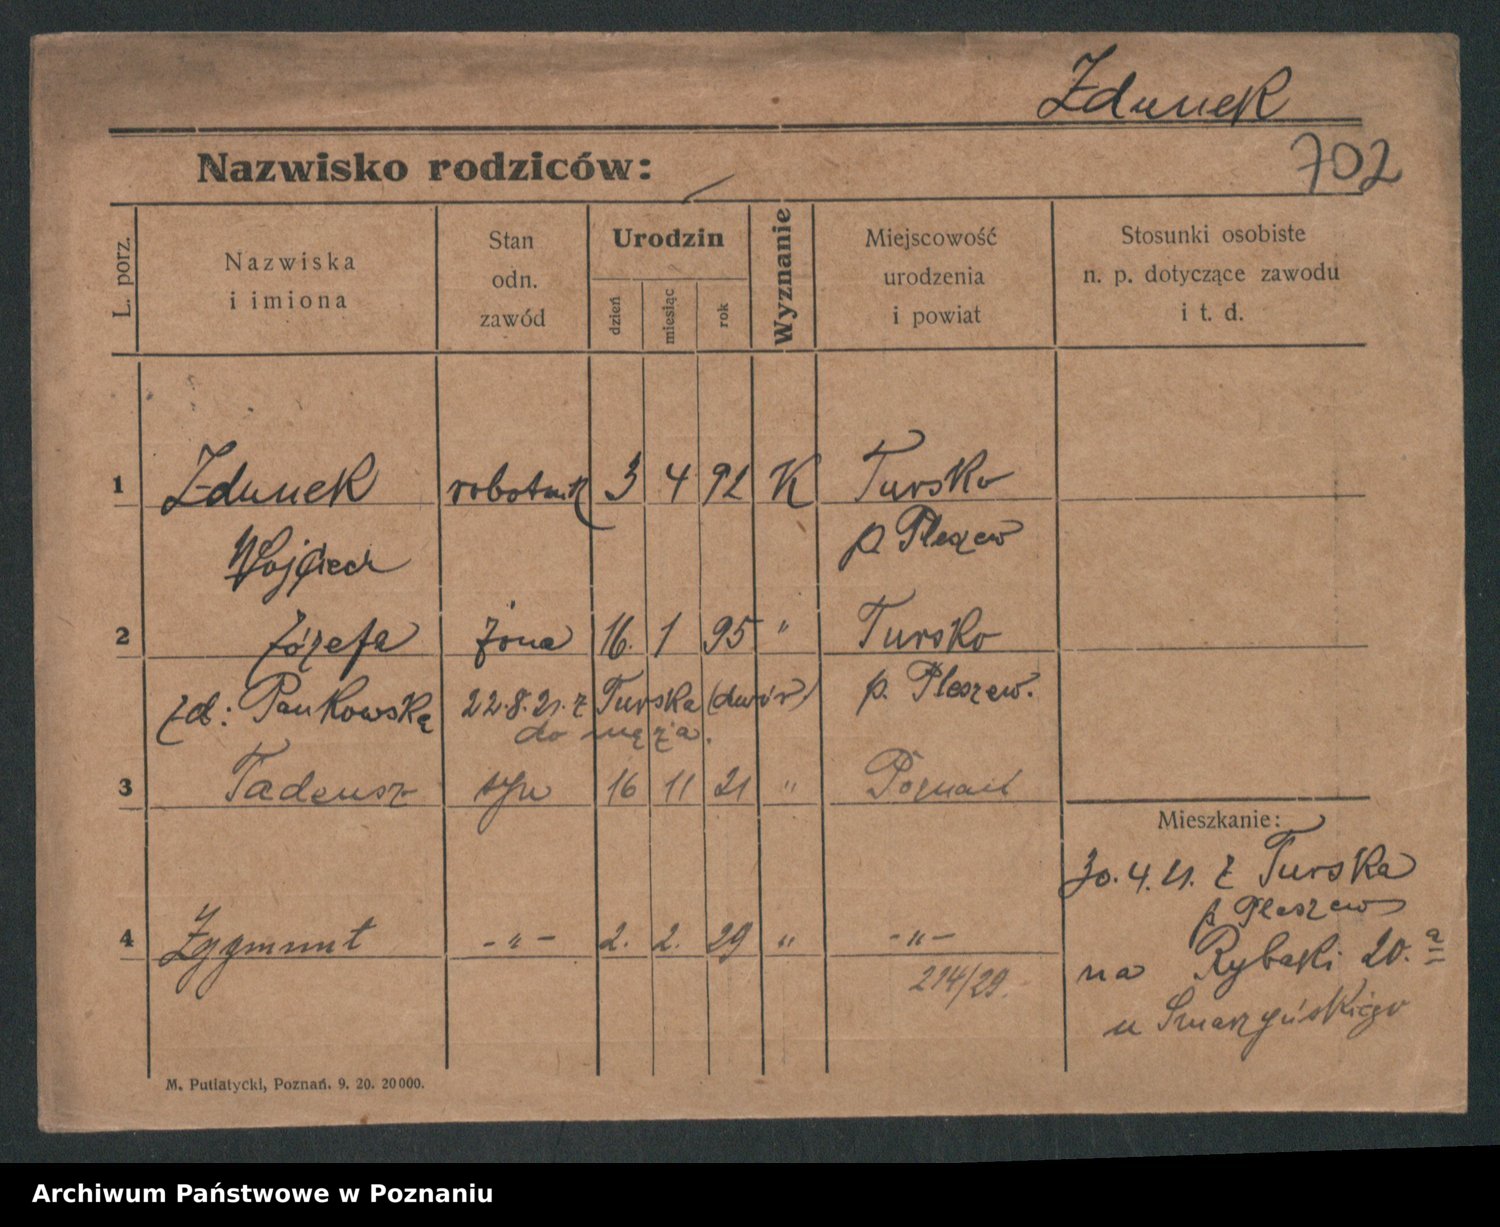 Zdunek
702
Nazwisko rodziców:
L. porz.
Nazwiska
i imiona
Stan
odn.
zawód
Urodzin
dzień
miesiąc
rok
Wyznanie
Miejscowość
urodzenia
i powiat
Stosunki osobiste
n. p. dotyczące zawodu
i t. d.
1 Zdunek robotnik 3 4 92 K Tursko
Wojciech p. Pleszew
2 Józefa żona 16. 1 95 " Tursko
zd: Pankowską 22.8.21. z Turska (dwór) p. Pleszew.
do męża.
3 Tadeusz syn 16 11 21 " Poznań
Mieszkanie:
30.4.21. z Turska
p Pleszew
4 Zygmunt - " - 2. 2. 29 " - " -
na Rybaki 20. a
214/29.
u Smarzyńskiego
M. Putiatycki, Poznań. 9. 20. 20000.
Archiwum Państwowe w Poznaniu